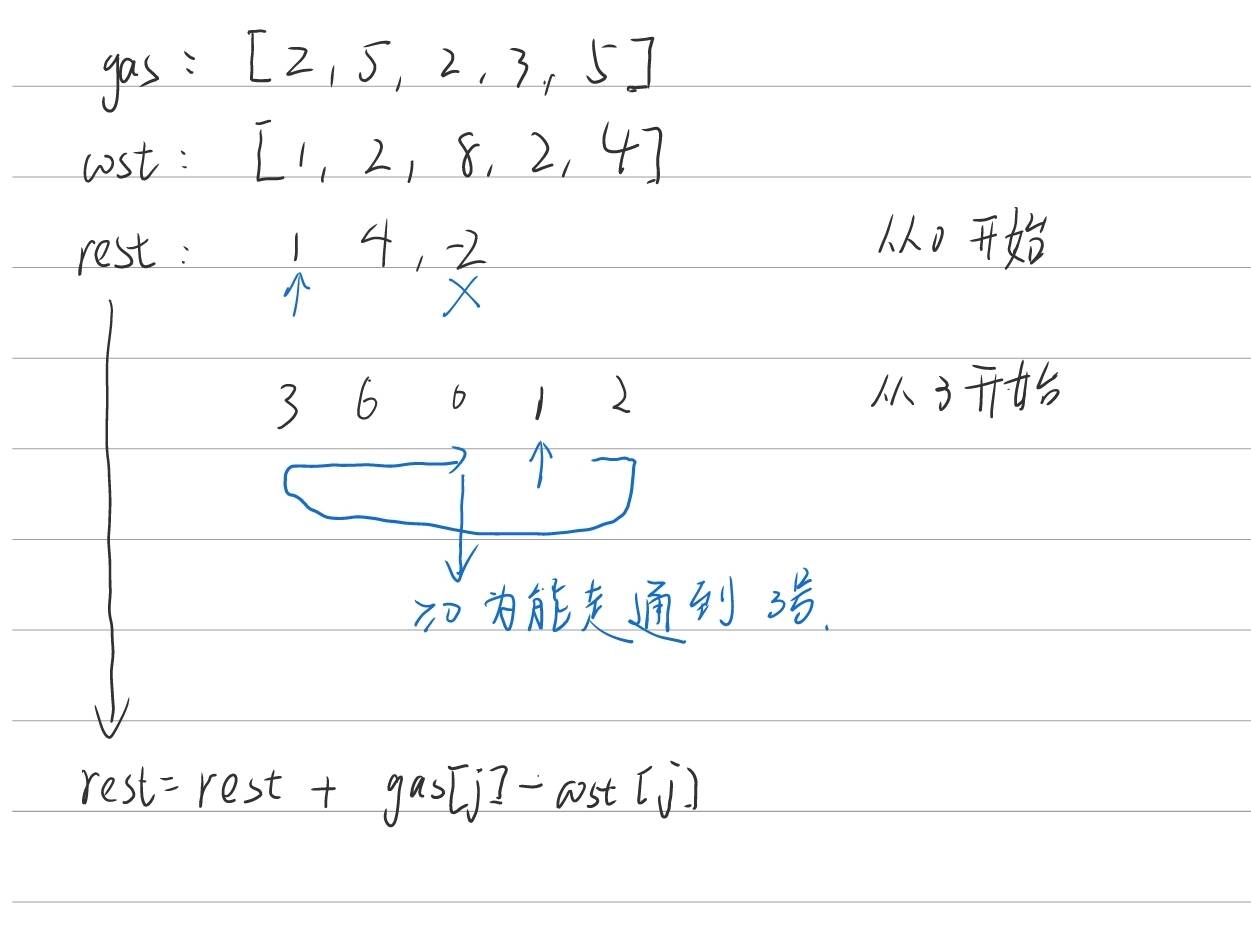 gas : [2, 5, 2, 3, 5]
cost : [1, 2, 8, 2, 4]
rest : 1 4, -2 从0开始
×
3 6 0 1 2 从3开始
≥0 为能走通到 3号.
rest = rest + gas[j] - cost[j]